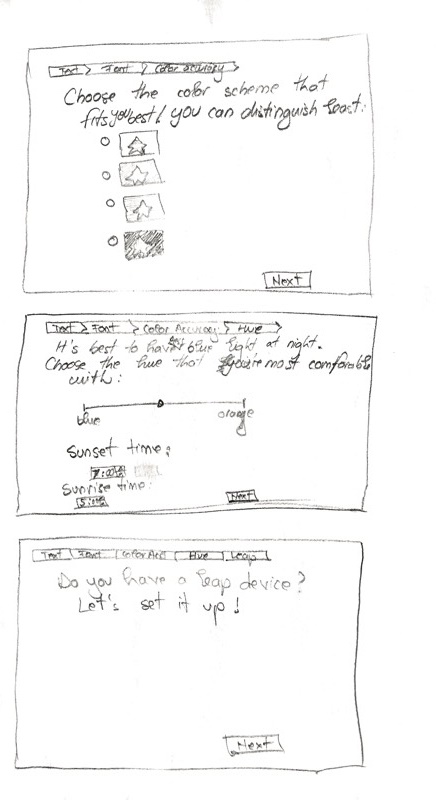 Text > Font > Color accuracy >
Choose the color scheme that
fits you best / you can distinguish least:
Next
Text > Font > Color Accuracy > Hue >
It's best to have blue light at night.
Choose the hue that you're most comforable
with:
blue orange
Sunset time:
Sunrise time:
Next
Text Font Color Acc Hue Leap
Do you have a leap device?
Let's set it up!
Next